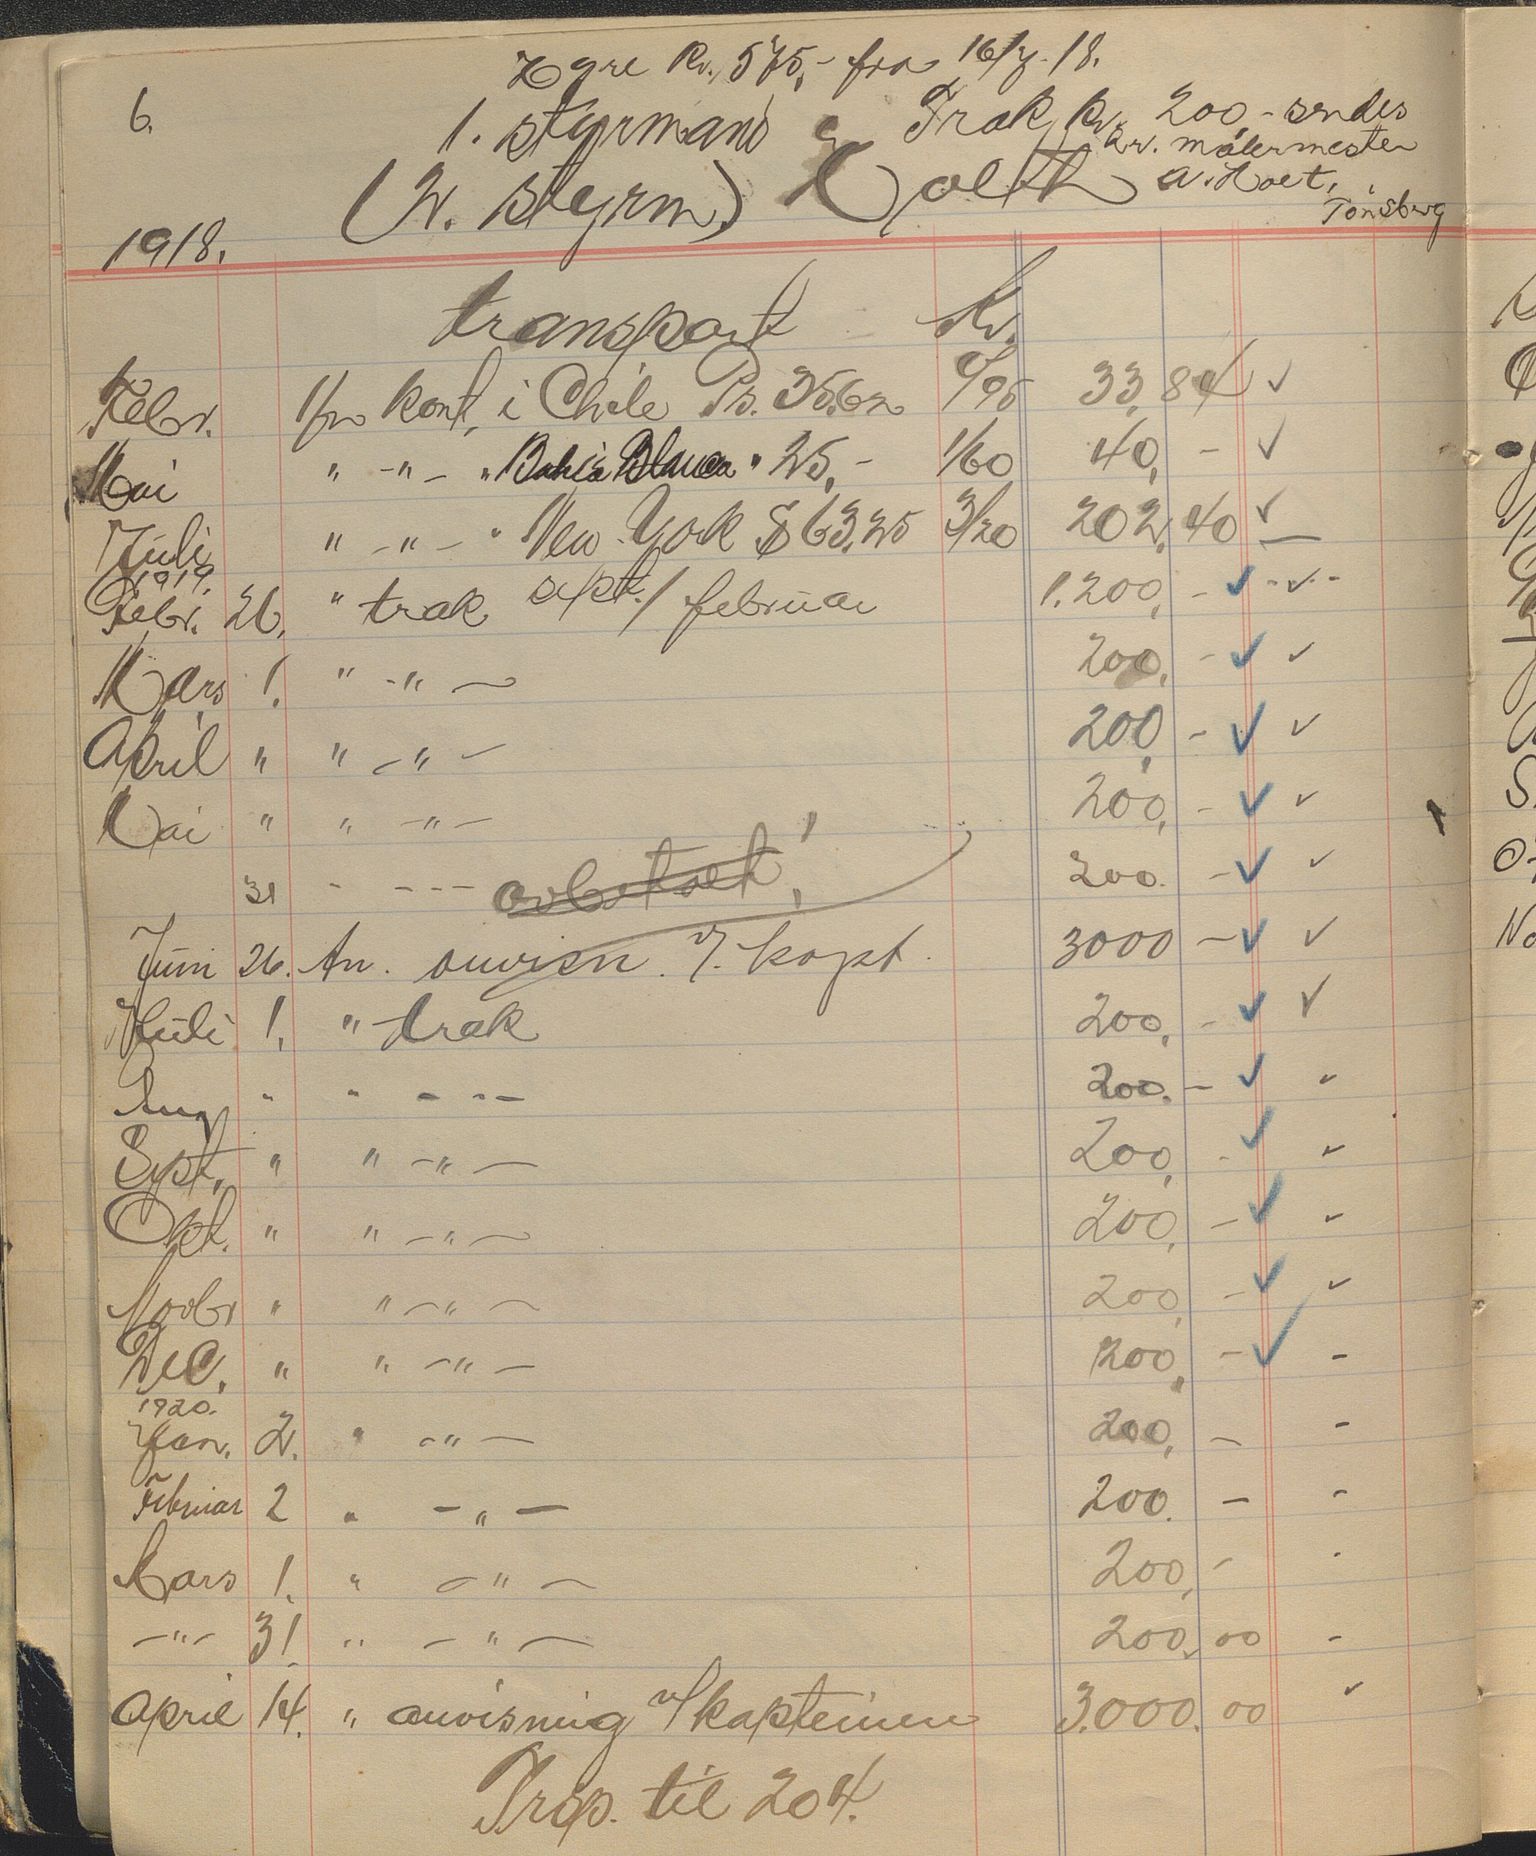 Hyre Kr. 575,- fra 16/7. 18.
6.
1. styrmand Træk Kr. 200,- sendes
Hr. malermester
(2. styrm) Holth A. Holt,
Tønsberg
1918.
transport Kr.
Febr. An kont, i Chile Ps. 35.62 0/95 33,84 ✓
Mai " -"- " Bahia Blanca " 25,- 1/60 40,- ✓
Juli " -"- " New York $ 63,25 3/20 202,40 ✓
1919.
Febr. 26. " træk sept./februar 1.200,- ✓ ✓
Mars 1. " -"- 200,- ✓ ✓
April " " -"- 200,- ✓ ✓
Mai " " -"- 200,- ✓ ✓
31 - --- avbetalt! 200.- ✓ ✓
Juni 26. An. anvisn. v/ kapt. 3000 - ✓ ✓
Juli 1. " træk 200,- ✓ ✓
Aug " " -"- 200.- ✓ ✓
Sept. " " -"- 200,- ✓ ✓
Okt. " " -"- 200,- ✓ ✓
Novbr " " -"- 200,- ✓ ✓
Dec. " " -"- 200,- ✓ -
1920.
Jan. 2. " -"- 200,- -
Februar 2 " -"- 200.- -
Mars 1. " -"- 200,-
-"- 31. " -"- 200,00 -
April 14. " anvisning v/kapteinen 3.000.00 ✓
Trsp. til 204.